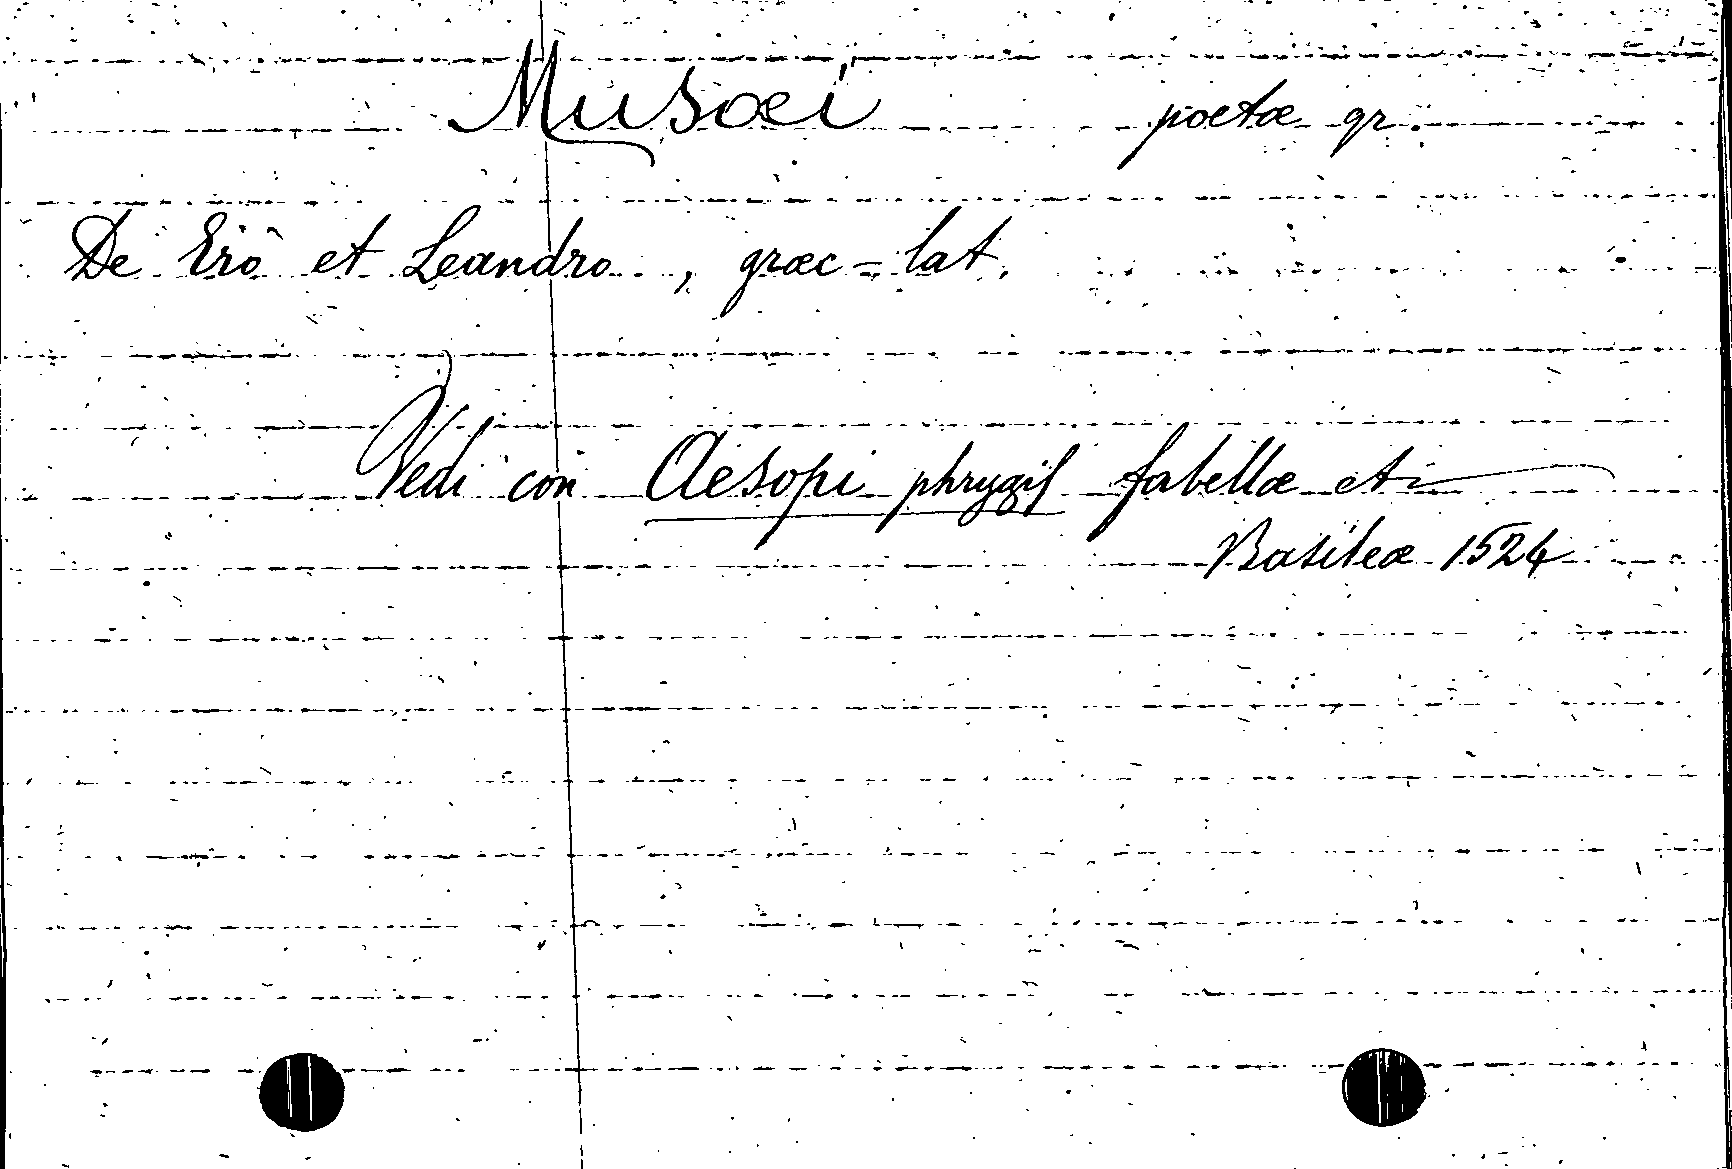 Musæi poetæ gr.
De Erô et Leandro, græc=lat.
Vedi con Aesopi phrygis fabellæ et
Basileæ 1524